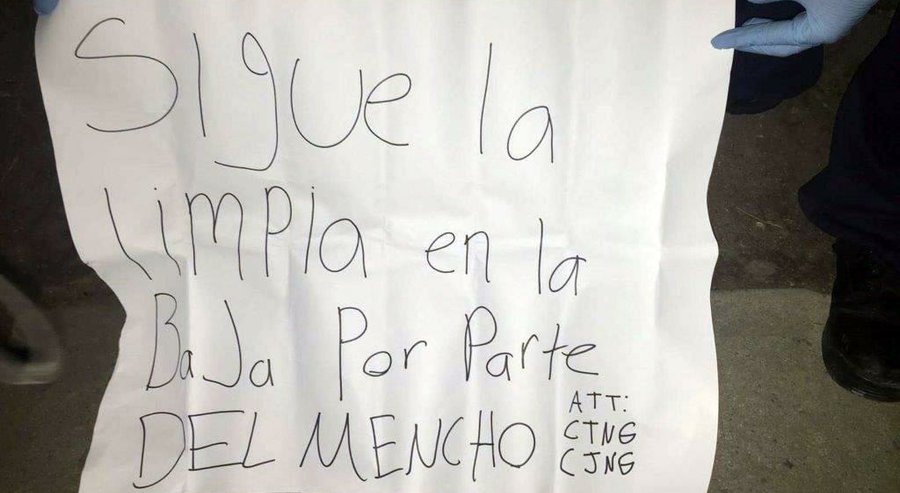 SIgue la
limpia en la
BaJa Por Parte
DEL MENCHO
ATT:
CTNG
CJNG